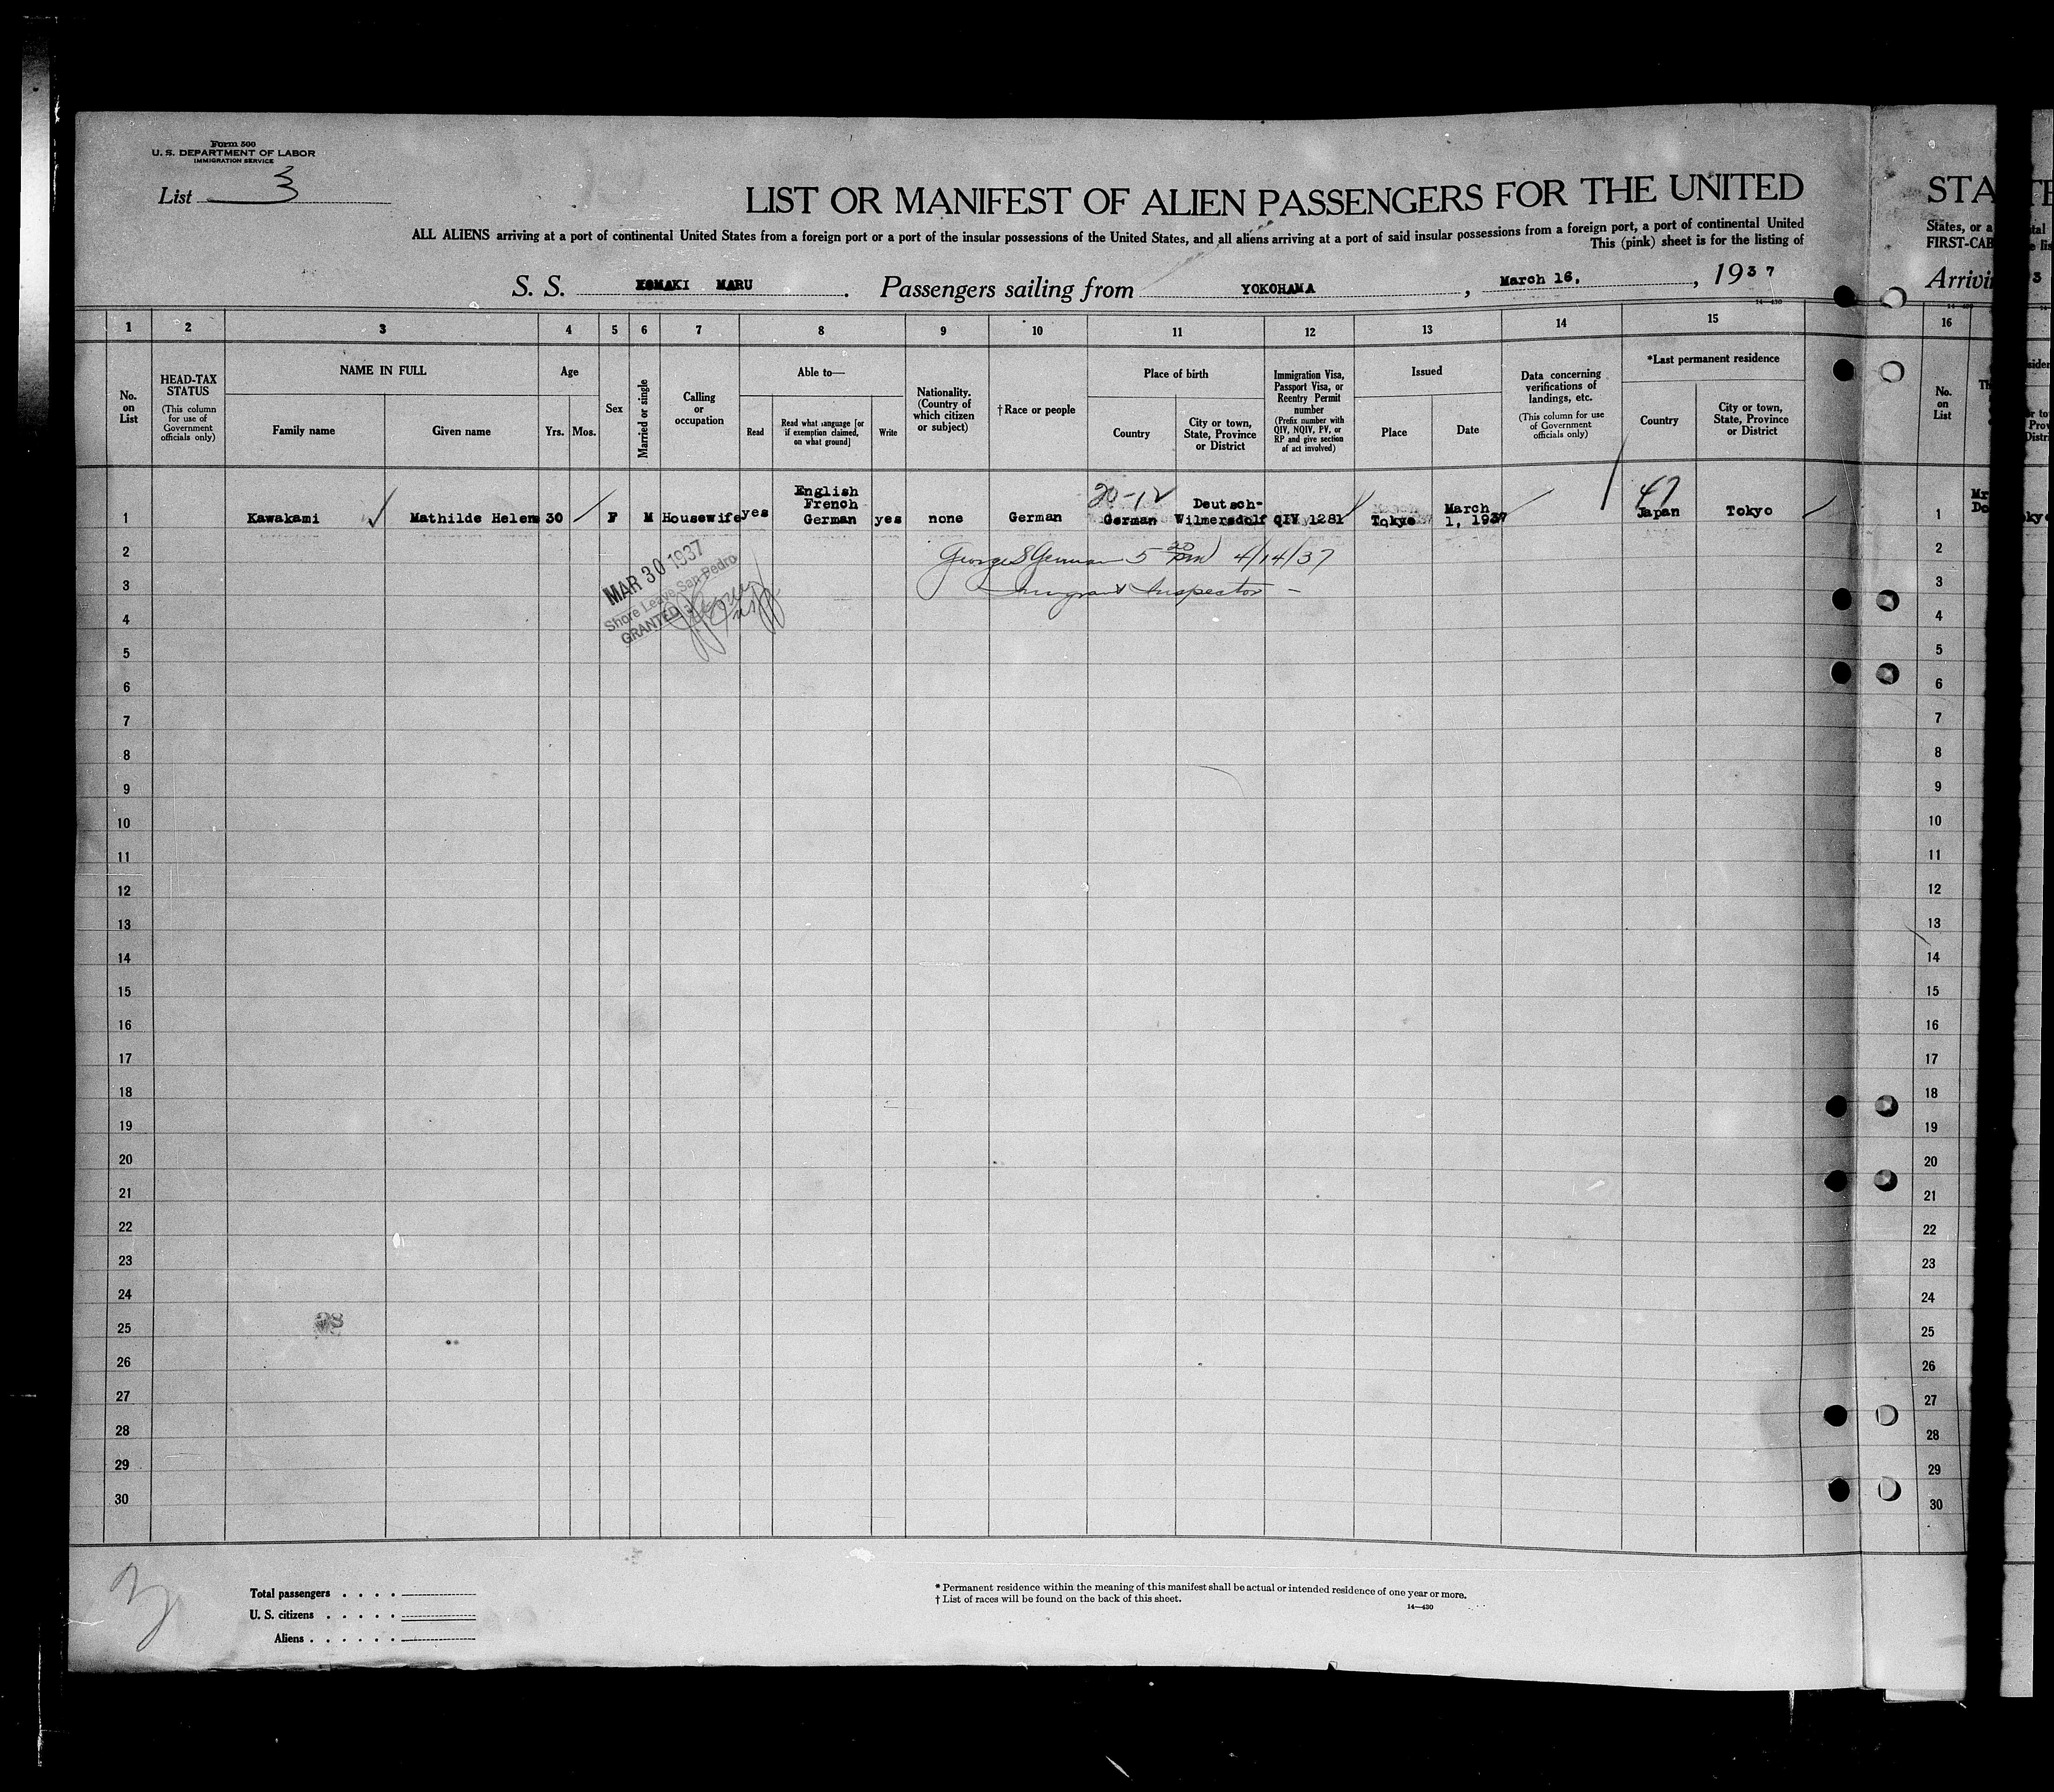 Form 500
U. S. DEPARTMENT OF LABOR
IMMIGRATION SERVICE
List 3
LIST OR MANIFEST OF ALIEN PASSENGERS FOR THE UNITED
ALL ALIENS arriving at a port of continental United States from a foreign port or a port of the insular possessions of the United States, and all aliens arriving at a port of said insular possessions from a foreign port, a port of continental United
This (pink) sheet is for the listing of
S. S. KOMAKI MARU. Passengers sailing from YOKOHAMA, March 16, , 1937
14—430
1 2 3 4 5 6 7 8 9 10 11 12 13 14 15
No. on List
HEAD-TAX STATUS
(This column for use of Government officials only)
NAME IN FULL
Family name
Given name
Age
Yrs. Mos.
Sex
Married or single
Calling or occupation
Able to—
Read
Read what language [or if exemption claimed, on what ground]
Write
Nationality. (Country of which citizen or subject)
†Race or people
Place of birth
Country
City or town, State, Province or District
Immigration Visa, Passport Visa, or Reentry Permit number
(Prefix number with QIV, NQIV, PV, or RP and give section of act involved)
Issued
Place
Date
Data concerning verifications of landings, etc.
(This column for use of Government officials only)
*Last permanent residence
Country
City or town, State, Province or District
1 Kawakami Mathilde Helene 30 F M Housewife yes English French German yes none German German Deutsch-Wilmersdolf QIV 1281 Tokyo March 1, 1937 Japan Tokyo
20-12
47
George S German 5 30 pm 4/14/37
Immigrant Inspector -
MAR 30 1937
Shore Leave San Pedro
GRANTED
2
3
4
5
6
7
8
9
10
11
12
13
14
15
16
17
18
19
20
21
22
23
24
25
26
27
28
29
30
Total passengers . . . .
U. S. citizens . . . . .
Aliens . . . . . .
* Permanent residence within the meaning of this manifest shall be actual or intended residence of one year or more.
† List of races will be found on the back of this sheet.
14—430
STA
States, or a
FIRST-CAB
Arrivi
16
No. on List
1
2
3
4
5
6
7
8
9
10
11
12
13
14
15
16
17
18
19
20
21
22
23
24
25
26
27
28
29
30